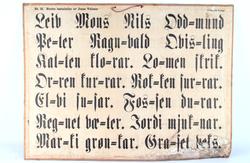 Leiv Mons Nils Odd=mund
Pe=ter Ragn=vald Qvis=ling
Kat=ten klo=rar. Lo=men skrik.
Or=ren kur=rar. Rot=ten fur=rar.
El=vi su=sar. Fos=sen du=rar.
Reg=net væ=ter. Jordi mjuk=nar.
Mar=ki grøn=kar. Gra=set veks.